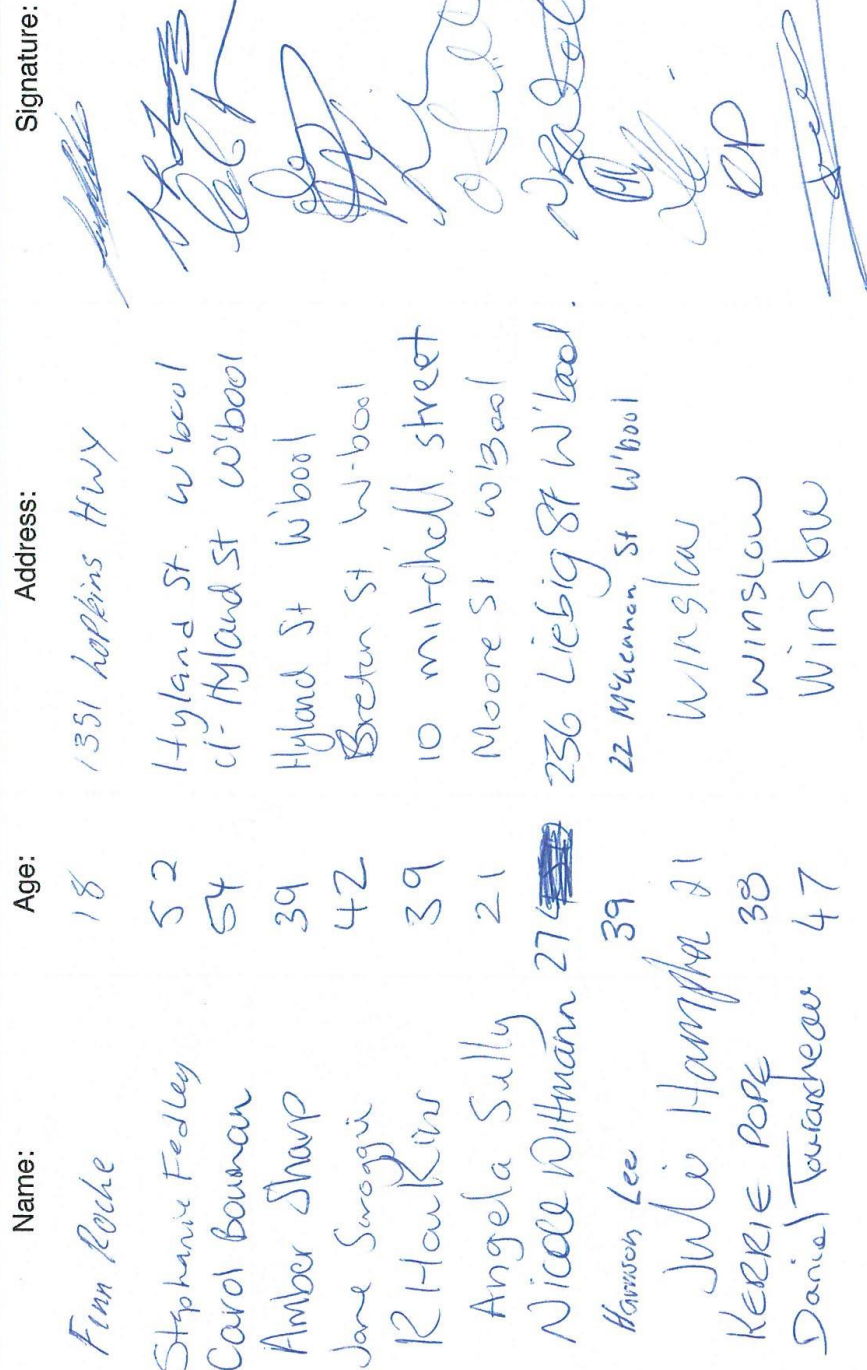 Name: Age: Address: Signature:
Finn Roche 18 1351 hopkins HWY
Stephanie Fedley 52 Hyland St. W'bool
Carol Bowman 54 Hyland St W'bool
Amber Sharp 39 Hyland St W'bool
Jane 42 Breton St W-bool
R Hawkins 39 10 mitchell street
Angela Sully 21 Moore St W'Bool
Nicole Wittmann 27 236 Liebig St W'bool.
Harrison Lee 39 22 McKennon St W'bool
Julie 21 Winslow
KERRIE POPE 38 WINSLOW KP
Daniel 47 Winslow